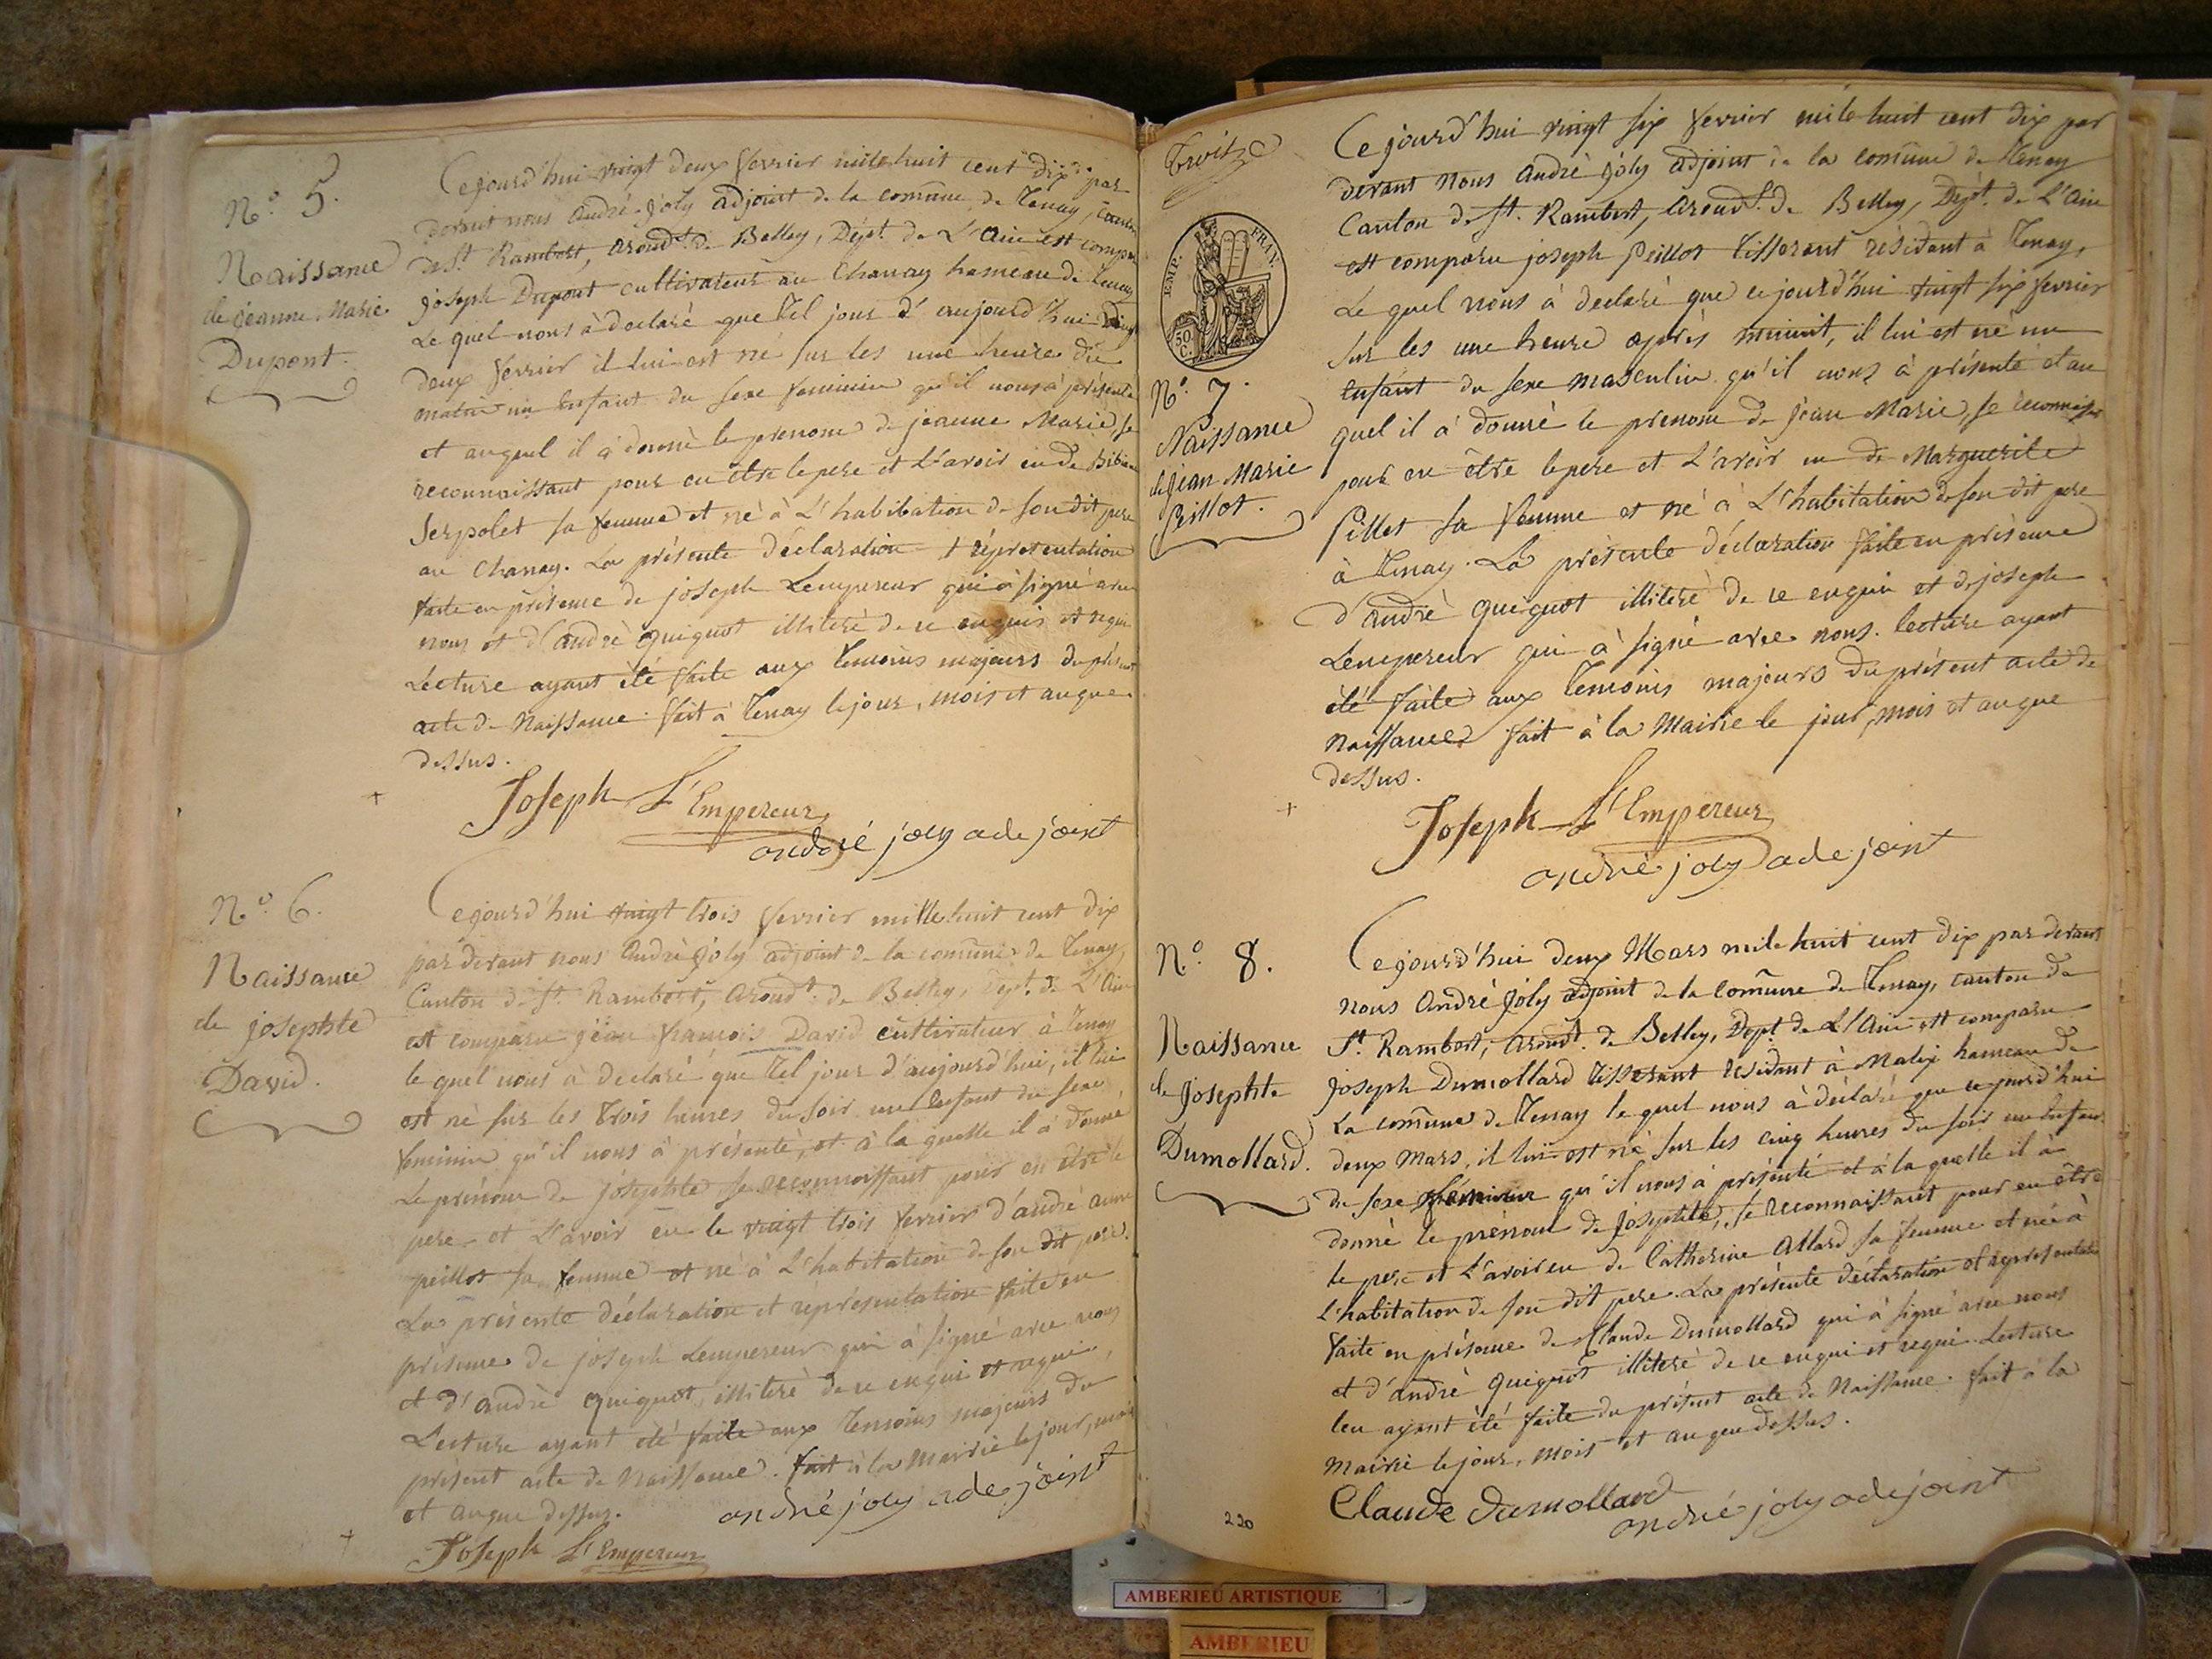 N.º 5.
Naissance
de jeanne Marie
Dupont.
Cejourd'hui vingt deux fevrier mile huit cent dix par
devant nous André Joly adjoint de la comune de Tenay, Canton
de St. Rambert, Arondt. de Belley, Dépt. de L'Ain est comparu
joseph Dupont cultivateur au Chanay hameau de Tenay
Le quel nous à declaré que tel jour d'aujourd'hui vingt
deux fevrier il lui est né sur les une heure du
matin un enfant du sexe feminin qu'il nous à présenté
et auquel il à donné le prenom de jeanne Marie, se
reconnaissant pour en etre le pere et L'avoir eu de Bibiane
Serpolet sa femme et né à L'habitation de son dit pere
au Chanay. La présente déclaration & répresentation
faite en présence de joseph Lempereur qui à signé avec
nous et d'andrè Quignot illiteré de ce enquis et requi
Lecture ayant été faite aux temoins majeurs du présent
acte de Naissance. fait à Tenay le jour, mois et an que
dessus.
Joseph L'Empereur
andré joly adejoint
N.º 6.
Naissance
de josephte
David.
Cejourd'hui vingt trois fevrier mille huit cent dix
par devant nous André Joly adjoint de la comune de Tenay,
Canton de St. Rambert, Arondt. de Belley, Dept. de L'Ain
est comparu jean francois David cultivateur à Tenay
le quel nous à declaré que tel jour d'aujourd'hui, il lui
est né sur les trois heures du soir un enfant du sexe
feminin qu'il nous à présenté, et à la quelle il à donné
Le prénom de josephte se reconnoissant pour en etre le
pere et L'avoir eu le vingt trois fevrier d'andré anne
peillot sa femme et né à L'habitation de son dit pere.
La présente déclaration et représentation faite en
présence de joseph Lempereur qui à signé avec nous
et d'andrè Quignot, illiteré de ce enqui et requi,
Lecture ayant été faite aux temoins majeurs du
présent acte de Naissance. fait à la Mairie le jour, mois
et an que dessus.
andré joly adejoint
Joseph L'Empereur
Trois
TEMP. FRAN.
50 C.
N.º 7.
Naissance
de jean Marie
Peillot.
Cejourd'hui vingt six fevrier mile huit cent dix par
devant nous André Joly adjoint de la comune de Tenay
Canton de St. Rambert, Arondt. de Belley, Dépt. de L'Ain
est comparu joseph Peillot Tisserant résidant à Tenay,
Le quel nous à declaré que cejourd'hui vingt six fevrier
sur les une heure après minuit, il lui est né un
enfant du sexe masculin qu'il nous à présenté et au
quel il à donné le prenom de jean Marie, se reconnaissant
pour en être le pere et L'avoir eu de Marguerite
Pillet sa femme et né à L'habitation de son dit pere
à Tenay. La présente déclaration faite en présence
d'andré Quignot illiteré de ce enquis et de joseph
Lempereur qui à signé avec nous. lecture ayant
été faite aux temoins majeurs du présent acte de
Naissance fait à la Mairie le jour, mois et an que
dessus.
Joseph L'Empereur
andré joly adejoint
N.º 8.
Naissance
de Josephte
Dumollard.
Cejourd'hui deux Mars mile huit cent dix par devant
nous André Joly adjoint de la Comune de Tenay, canton de
St. Rambert, Arondt. de Belley, Dept. de L'Ain est comparu
Joseph Dumollard Tisserant résidant à Malix hameau de
La comune de Tenay le quel nous à déclaré que cejourd'hui
deux mars, il lui est né sur les cinq heures du soir un enfant
du sexe feminin qu'il nous à présenté et à la quelle il à
donné le prénom de Josephte, se reconnaissant pour en être
le pere et L'avoir eu de Catherine Allard sa femme et née à
L'habitation de son dit pere. La présente déclaration et représentation
faite en présence de Claude Dumollard qui à signé avec nous
et d'andré Quignot illiteré de ce enqui et requi. Lecture
leu ayant été faite du présent acte de Naissance. fait à la
Mairie le jour, mois et an que dessus.
Claude Dumollard
andré joly adejoint
220
AMBERIEU ARTISTIQUE
AMBERIEU